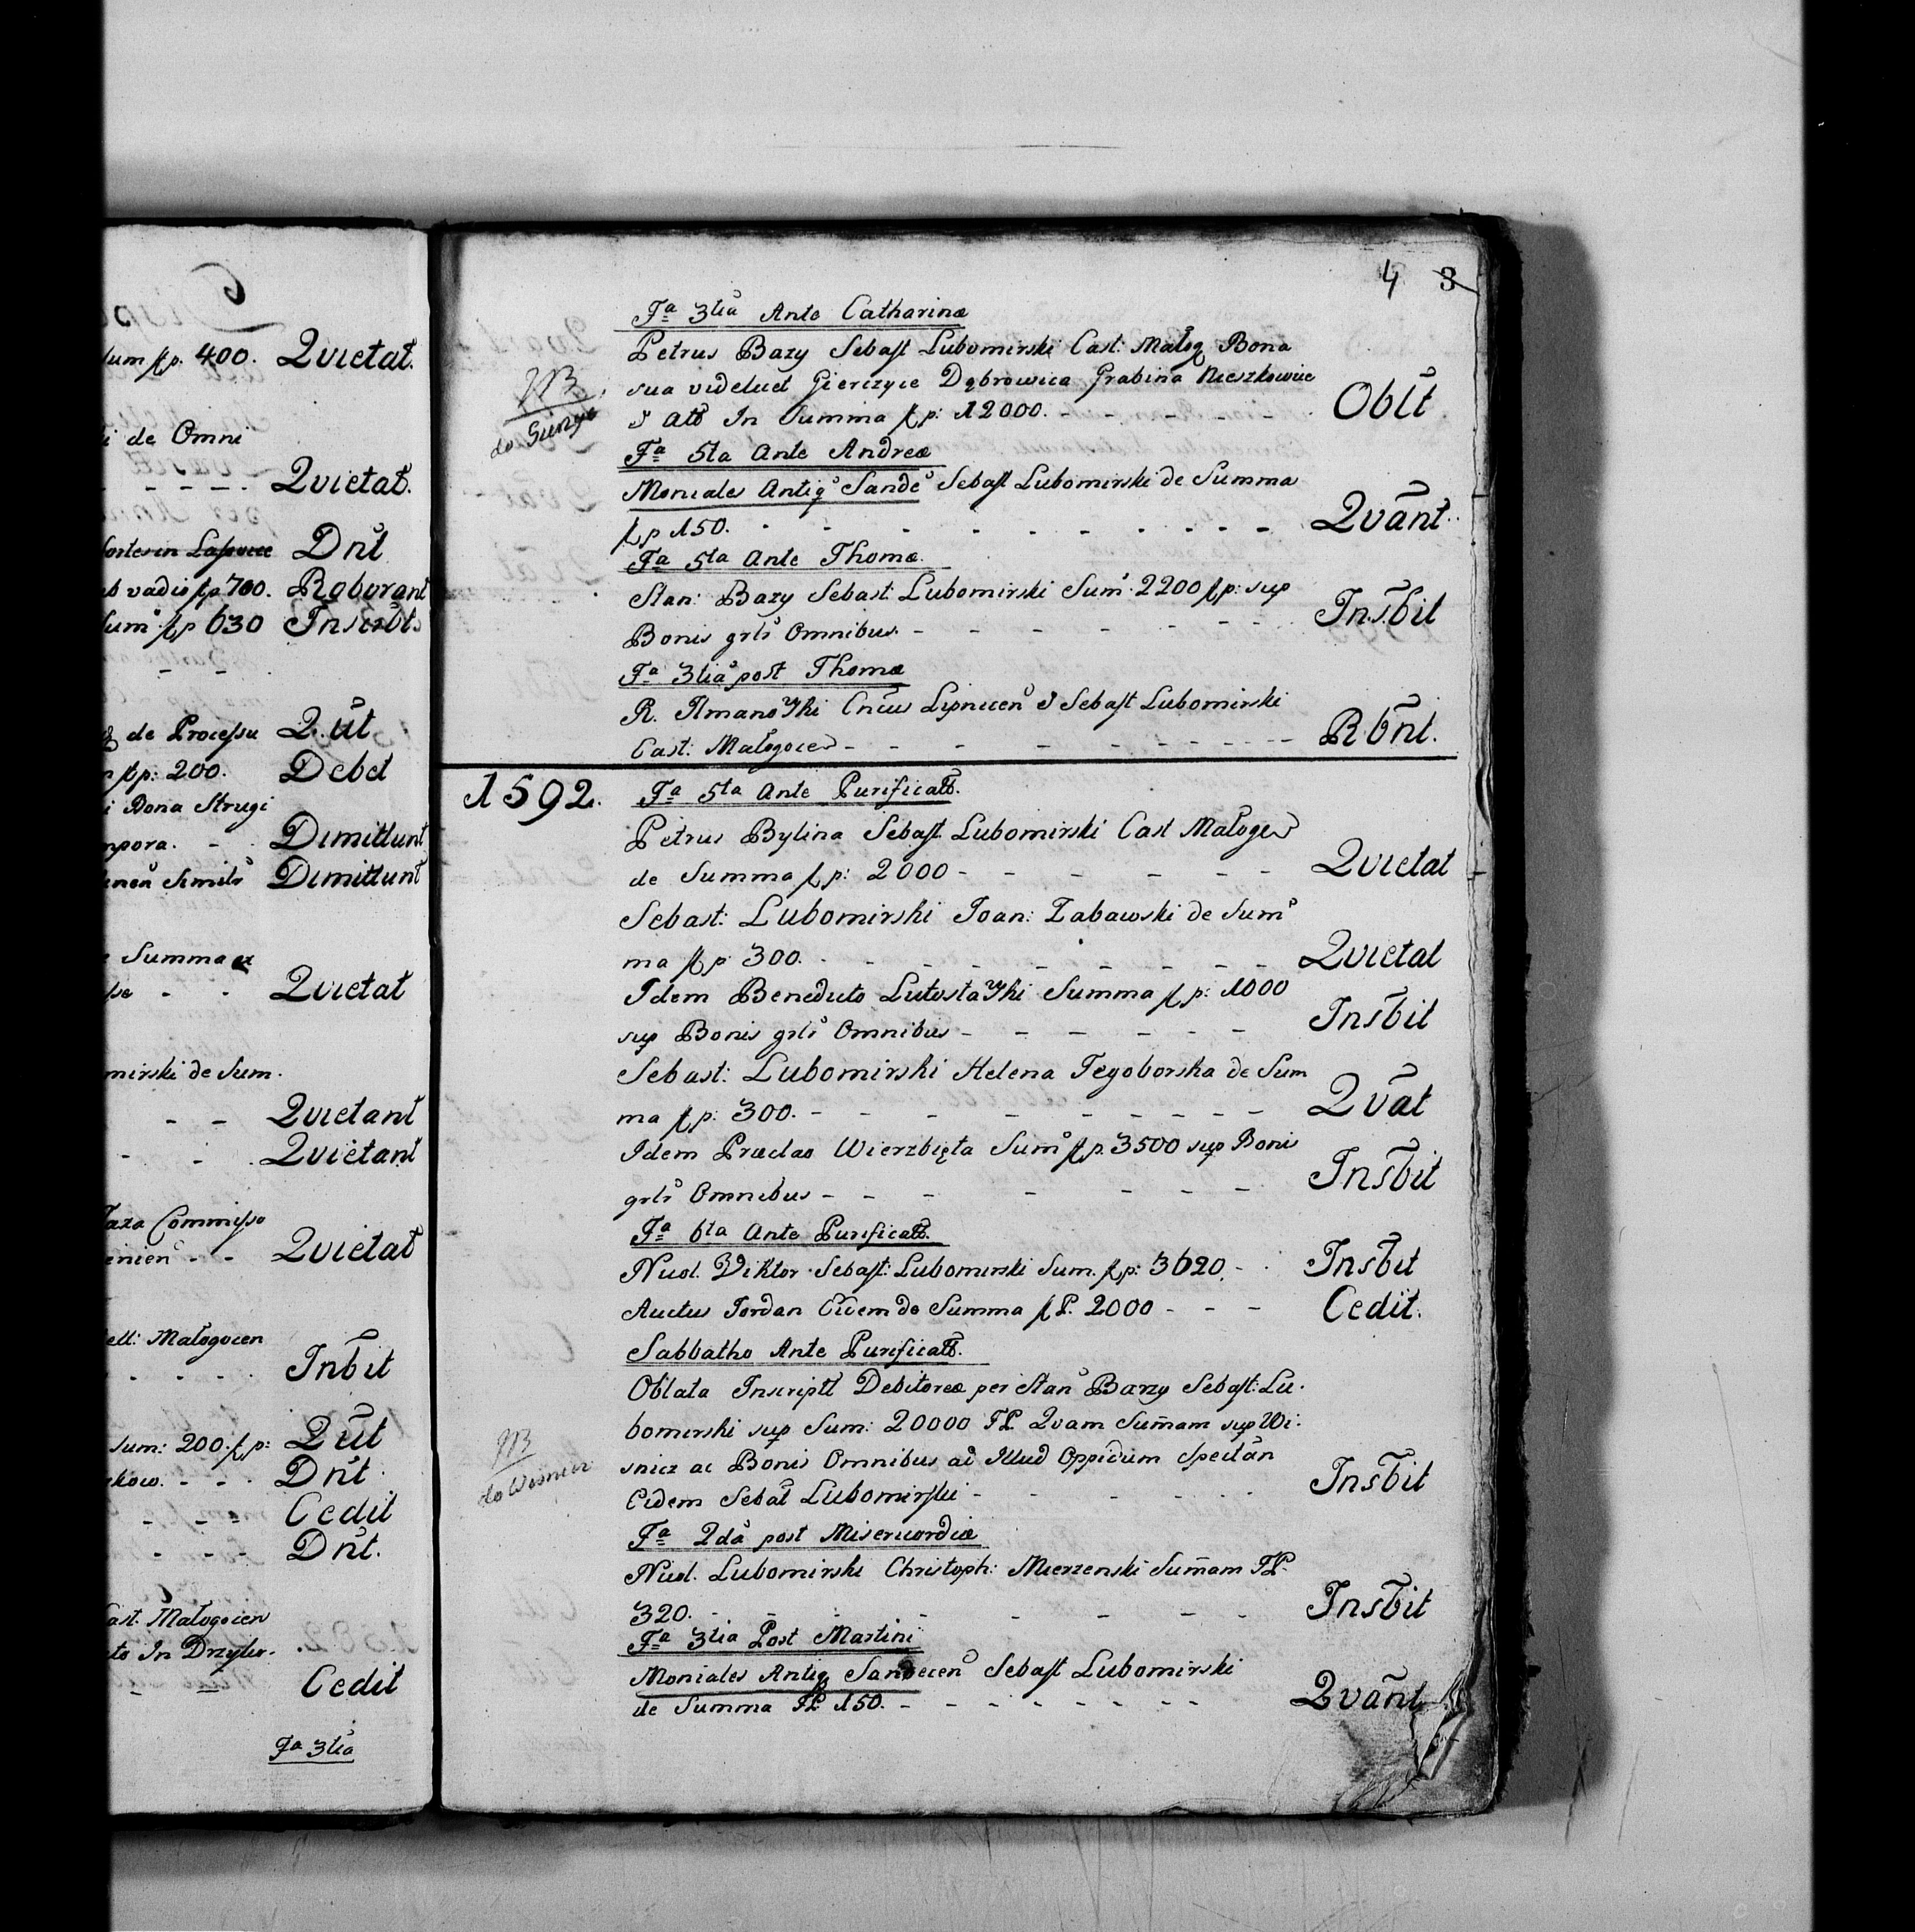 6
lum fl p. 400. Quietat.
i de Omni
- - - - . Quietat.
Dn̄t
b vadio fl p 700. Roborant
Sum fl p 630 Inscrbt.
de Processu Q. ut
fl p: 200. Debet
i Bona Strugi
mpora. - Dimittunt
Simili Dimittunt
e Summa
- - Quietat
mirski de Sum.
- - Quietant
- . Quietant
Taxa Commisso
enien - - Quietat
ell: Małogocen
- . . . . Inbit
sum: 200. fl p: Qūt
kow. - - . Dn̄t.
- - - Cedit
- - - - Dn̄t.
ast. Małogocen
to In Drzyko.
- = Cedit
Fa 3tia
4 3
Fa 3tia Ante Catharinæ
Petrus Bazy Sebast Lubomirski Cast: Małog Bona
NB. sua videlicet Gierczyce Dąbrowica Grabina Nieszkowice
do
& Att In Summa fl p: 12000. - - - - - - . Oblt
Fa 5ta Ante Andreæ
Moniales Antiq Sande Sebast Lubomirski de Summa
fl p 150. - - - - - - - - - Qvānt.
Fa 5ta Ante Thomæ.
Stan: Bazy Sebast: Lubomirski Sum 2200 fl p: sup
Bonis grls Omnibus. - - - - - - - Insbit
Fa 3tia post Thomæ
R. Ilmanoski Cnčus Lipnicen & Sebast Lubomirski
Cast: Małogocen - - - - - - - - - Rbnt.
1592. Fa 5ta Ante Purificatt.
Petrus Bylina Sebast. Lubomirski Cast Małogen
de Summa fl p: 2000 - - - - - - - Quietat
Sebast: Lubomirski Joan: Zabawski de Sum
ma fl p 300. - - - - - - - - - Quietat
Idem Benedicto Lutostaski Summa fl p: 1000
sup Bonis grls Omnibus - - - - - - Insbit
Sebast: Lubomirski Helena Tegoborska de Sum
ma fl p: 300. - - - - - - - - - Qvāt
Idem Præclao Wierzbięta Sum fl p. 3500 sup Bonis
grls Omnibus - - - - - - - Insbit
Fa 6ta Ante Purificatt.
Nicol. Viktor Sebast: Lubomirski Sum. fl p: 3620. - . Insbit
Auctus Jordan Eidem de Summa fl P. 2000 - - - Cedit.
Sabbatho Ante Purificatt.
Oblata Inscriptt Debitoreæ per Stan Barzy Sebast: Lu.
bomirski sup Sum: 20000 FP. Quam Sum̄am sup Wi.
NB
do Wisnicz snicz ac Bonis Omnibus ad Illud Oppidum Spectān
Eidem Sebat Lubomirski - - - - . . Insbit
Fa 2da post Misericordiæ
Nicol. Lubomirski Christoph: Mierzenski Sum̄am FP.
320. - - - - - - - - Insbit
Fa 3tia Post Martini
Moniales Antiq Sandecen Sebast Lubomirski
de Summa FP. 150. - - - - - - - - Qvānt